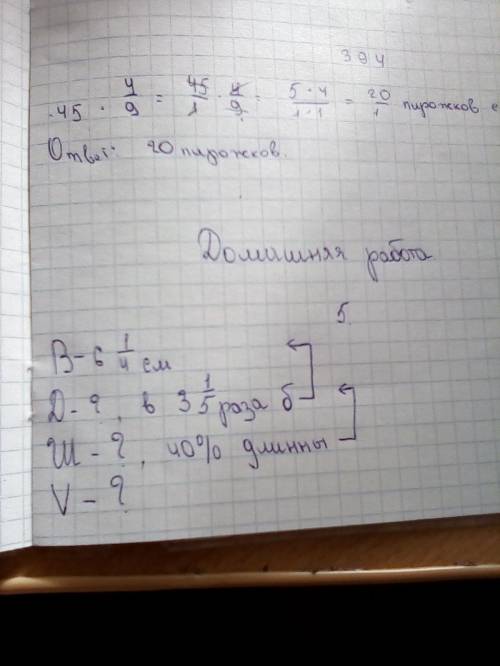 394
.45 · 4/9 = 45/1 · 4/9 = 5·4/1·1 = 20/1 пирожков с
Ответ: 20 пирожков.
Домашняя работа
5.
В - 6 1/4 см
Д - ?, в 3 1/5 раза б
Ш - ?, 40% длинны
V - ?